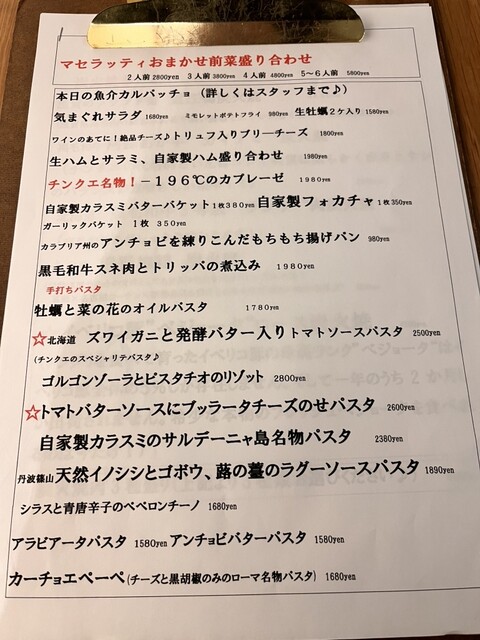 マセラッティおまかせ前菜盛り合わせ
２人前 2800yen ３人前 3800yen ４人前 4800yen ５〜６人前 5800yen
本日の魚介カルパッチョ（詳しくはスタッフまで♪）
気まぐれサラダ 1680yen ミモレットポテトフライ 980yen 生牡蠣２ケ入り 1580yen
ワインのあてに！絶品チーズ♪トリュフ入りブリーチーズ 1800yen
生ハムとサラミ、自家製ハム盛り合わせ 1980yen
チンクエ名物！－１９６℃のカプレーゼ １９８０yen
自家製カラスミバターバケット１枚３８０yen 自家製フォカチャ１枚350yen
ガーリックバケット １枚 ３５０yen
カラブリア州のアンチョビを練りこんだもちもち揚げパン 980yen
黒毛和牛スネ肉とトリッパの煮込み １９８０yen
手打ちパスタ
牡蠣と菜の花のオイルパスタ １７８０yen
☆北海道 ズワイガニと発酵バター入りトマトソースパスタ 2500yen
（チンクエのスペシャリテパスタ♪）
ゴルゴンゾーラとピスタチオのリゾット 2800yen
☆トマトバターソースにブッラータチーズのせパスタ 2600yen
自家製カラスミのサルデーニャ島名物パスタ 2380yen
丹波篠山天然イノシシとゴボウ、蕗の薹のラグーソースパスタ 1890yen
シラスと青唐辛子のペペロンチーノ 1680yen
アラビアータパスタ 1580yen アンチョビバターパスタ 1580yen
カーチョエペーペ（チーズと黒胡椒のみのローマ名物パスタ） 1680yen